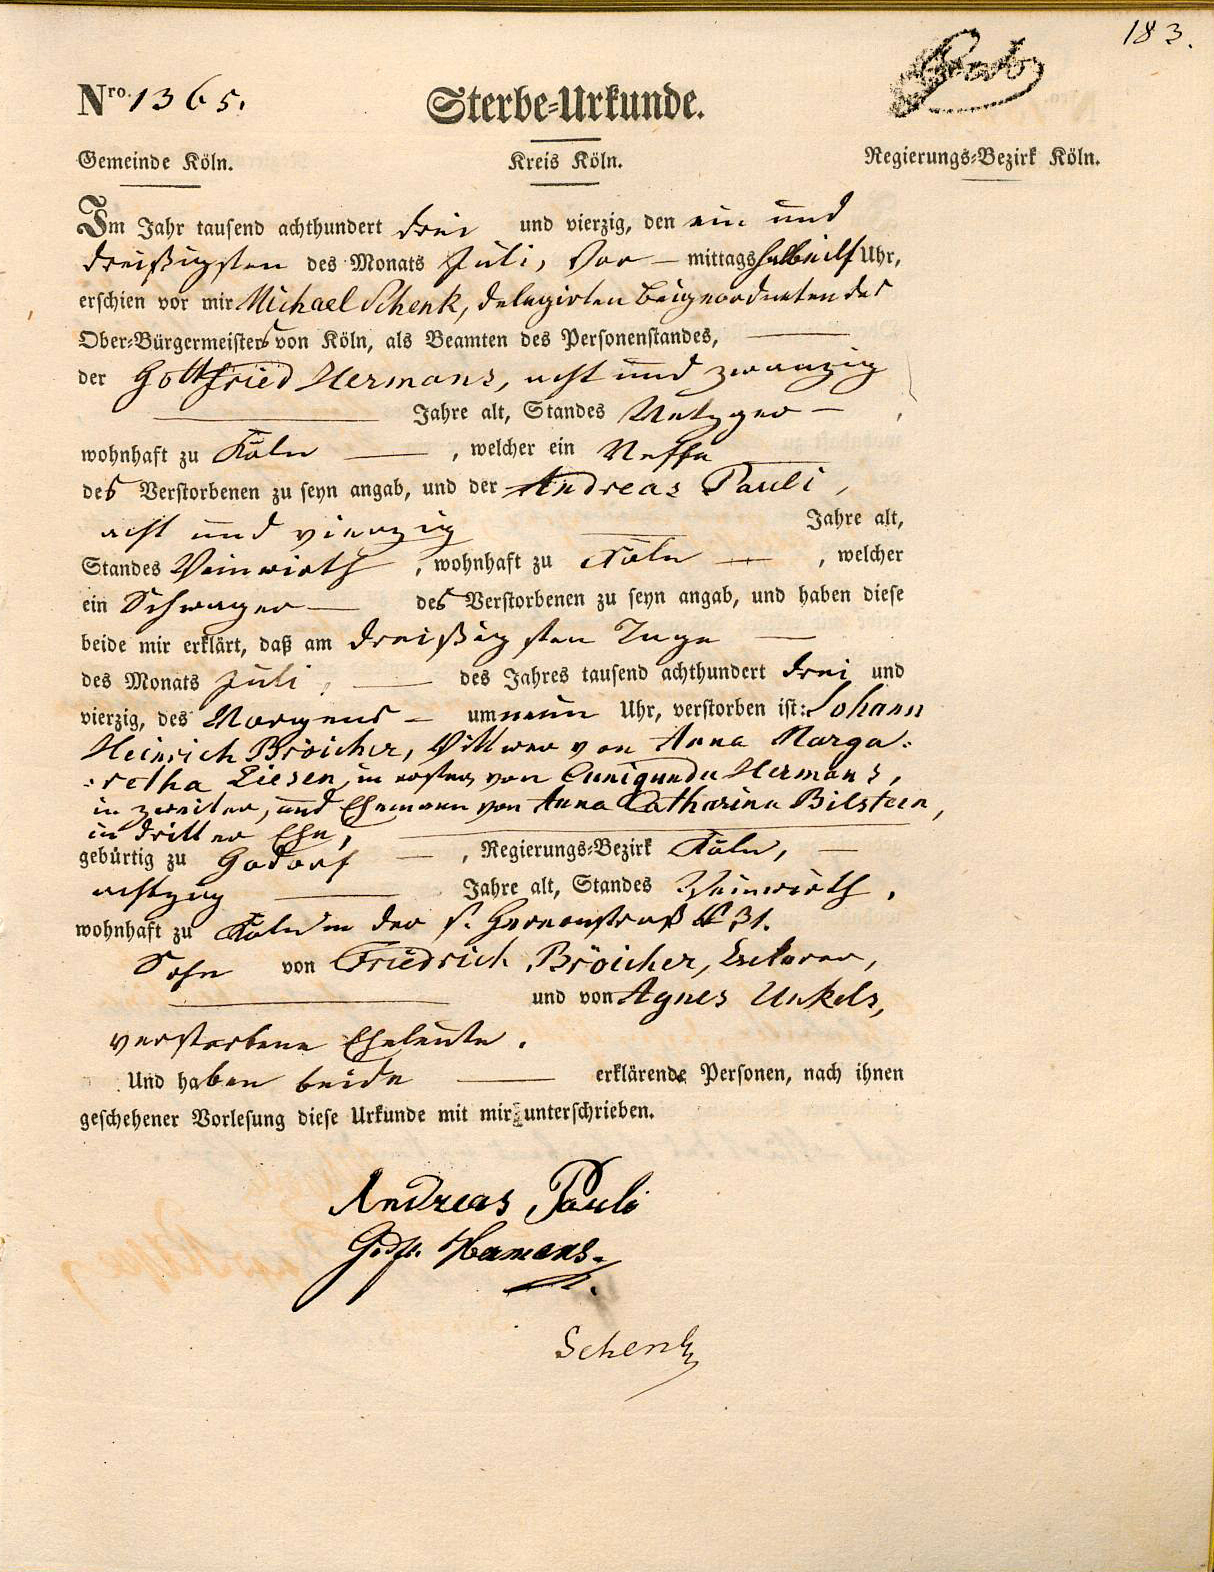 183.
Nro. 1365.
Sterbe-Urkunde.
Gemeinde Köln. Kreis Köln. Regierungs-Bezirk Köln.
Im Jahr tausend achthundert drei und vierzig, den ein und
dreißigsten des Monats Juli, Vor – mittags halb eilf Uhr,
erschien vor mir Michael Schenk, delegirten Beigeordneten des
Ober-Bürgermeisters von Köln, als Beamten des Personenstandes,
der Gottfried Hermans, acht und zwanzig
Jahre alt, Standes Metzger – ,
wohnhaft zu Köln – , welcher ein Neffe
des Verstorbenen zu seyn angab, und der Andreas Pauli,
acht und vierzig Jahre alt,
Standes Weinwirth , wohnhaft zu Köln – , welcher
ein Schwager – des Verstorbenen zu seyn angab, und haben diese
beide mir erklärt, daß am dreißigsten Tage –
des Monats Juli, – des Jahres tausend achthundert drei und
vierzig, des Morgens – um neun Uhr, verstorben ist: Johann
Heinrich Bröicher, Wittwer von Anna Marga:
:retha Liesen, in erster, von Cunigunda Hermans,
in zweiter, und Ehemann von Anna Catharina Bilstein,
in dritter Ehe,
gebürtig zu Godorf – , Regierungs-Bezirk Köln, –
achtzig – Jahre alt, Standes Weinwirth,
wohnhaft zu Köln in der St. Gereonstraß № 31.
Sohn von Friedrich Bröicher, Ackerer,
und von Agnes Unkels,
verstorbene Eheleute.
Und haben beide – erklärende Personen, nach ihnen
geschehener Vorlesung diese Urkunde mit mir unterschrieben.
Andreas Pauli
Godfr. Hermans.
Schenk